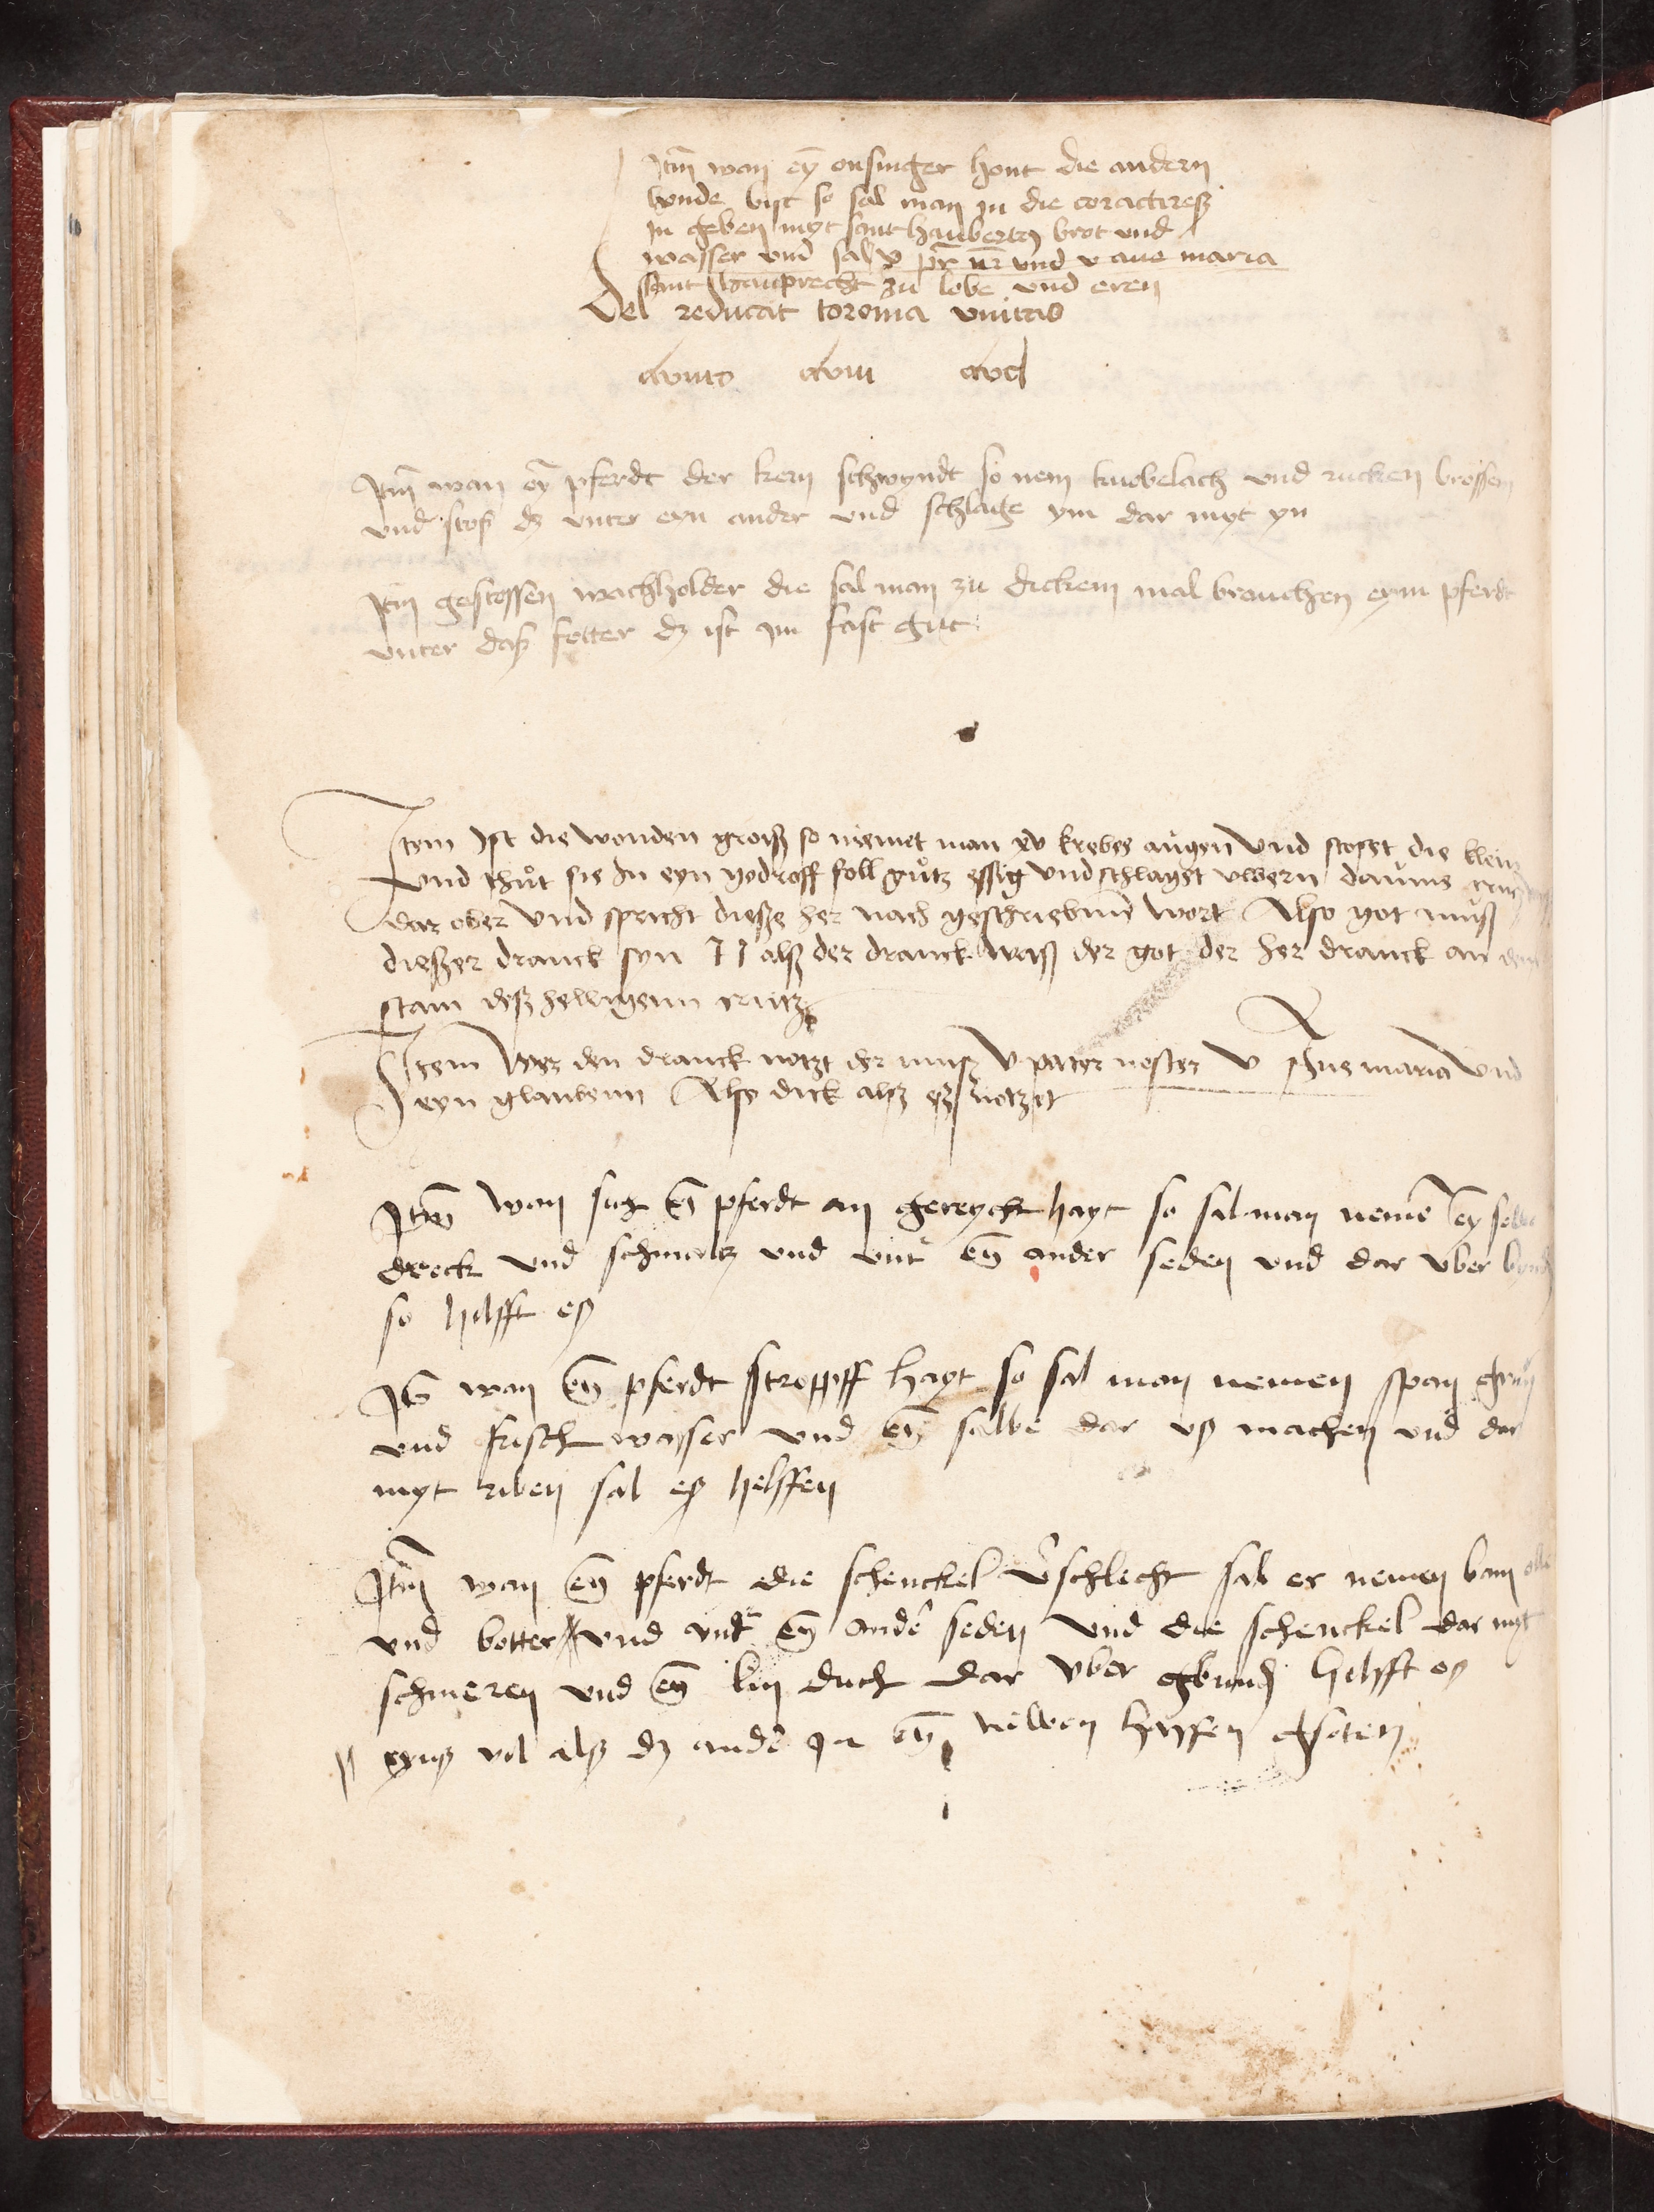 Itm̄ wan eȳ onsinger hont die andern
hunde bist so sal man in die coractereß
in geben myt sant haubertz brot und
wasser und sal v pr̄ nr̄ und v aue maria
sant hauprecht zu lobe und eren
Del reducat toroma vnitas
Itm̄ wan eȳ pferdt der kern schwyndt so nem knobelach und rucken brossen
und stoß dz unter eyn ander und schlage ym dar myt yn
Itm̄ gestossen wachholder die sal man zu dickem mal bruchen eym pferdt
unter daß fotter dz ist im fast gut
Item Ist die wonden groiß so niemet man xv krebes augen Und stosset die klein
Und thut sie In eyn foll gutz essig Und schlagst uwern daume
dar ober Und spricht dieße her nach geschriebenn wort Also got muß
dießer dranck syn alß der dranck waß der got der her dranck an dem
stam deß helligenn crutz
Item Wer den dranck notzt der muß V pater noster V Aue maria Und
eyn glaubenn Also dick alß eß notzet
Itm̄ wan sich eȳ pferdt an gereycht hayt so sal man neme
dreck und schmaltz und unt' eȳ ander seden und dar uber
so hilfft eß
It̄ wan eȳ pferdt stropff hayt so sal man nemen span grun
und frisch wasser und eȳ salbe dar uß machen und dar
myt riben sal eß helffen
Itm̄ wan eȳ pferdt die schenckel v'schlecht sal er nemen bam olle
und botter und unt' eȳ ande' seden und die schenckel dar myt
schmeren und eȳ lin duch dar uber gbund hilfft eß
eynß vil alß dz ande' In eȳ newen haffen gsoten